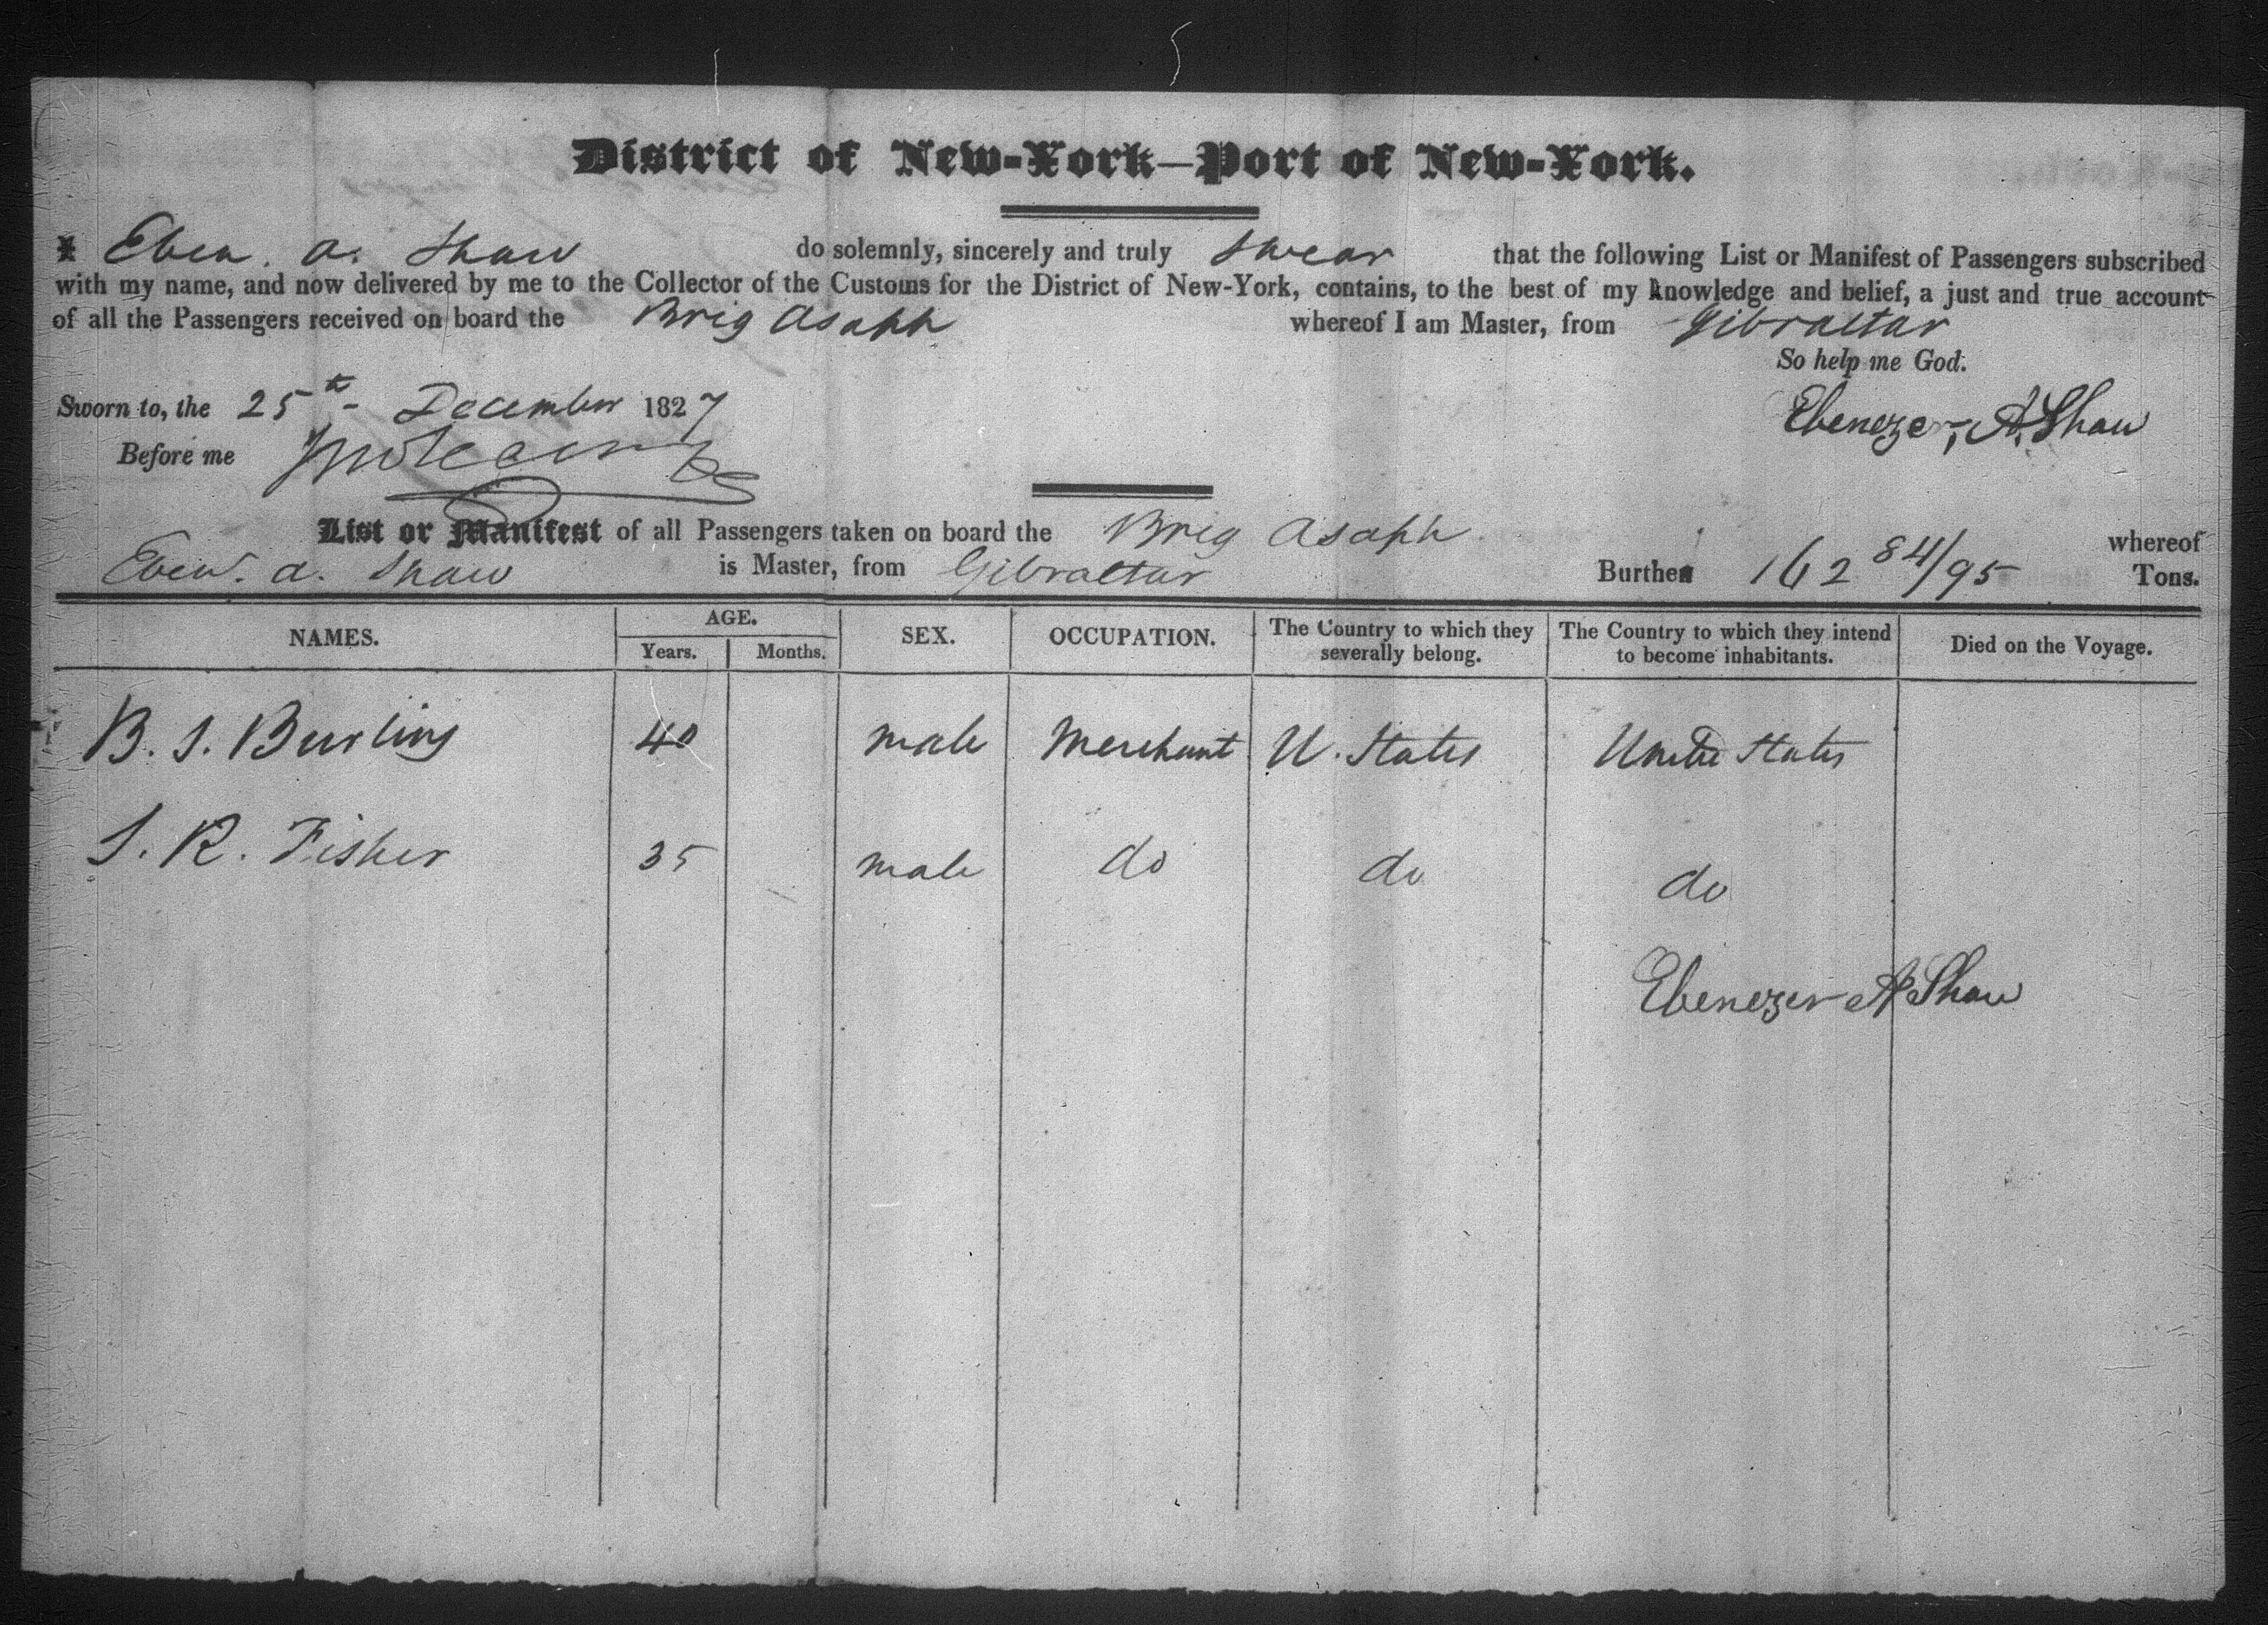 District of New-York—Port of New-York.
I Eben. A. Shaw do solemnly, sincerely and truly swear that the following List or Manifest of Passengers subscribed
with my name, and now delivered by me to the Collector of the Customs for the District of New-York, contains, to the best of my knowledge and belief, a just and true account
of all the Passengers received on board the Brig Asaph whereof I am Master, from Gibraltar
So help me God.
Sworn to, the 25th December 1827
Ebenezer A. Shaw
Before me
List or Manifest of all Passengers taken on board the Brig Asaph whereof
Eben. A. Shaw is Master, from Gibraltar Burthen 162 84/95 Tons.
NAMES. AGE. Years. Months. SEX. OCCUPATION. The Country to which they severally belong. The Country to which they intend to become inhabitants. Died on the Voyage.
B. S. Burling 40 male Merchant U. States United States
S. R. Fisher 35 male do do do
Ebenezer A Shaw